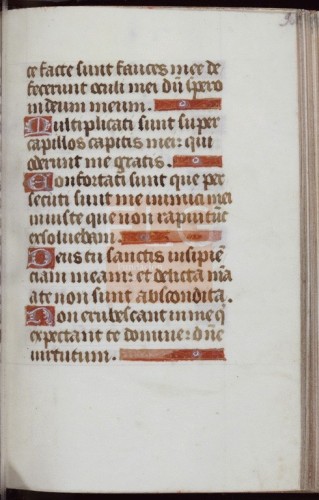 te facte sunt fauces mee de
fecerunt oculi mei dū spero
in deum meum.
Multiplicati sunt super
capillos capitis mei: qui
oderunt me gratis.
Confortati sunt que per
secuti sunt me inimici mei
iniuste que non rapui tūc
exsoluebam.
Deus tu sanctis insipiē
ciam meam: et delicta mēa
a te non sunt abscondita.
Non erubescant in me q̄
expectant te domine: dn̄e
uirtutum.